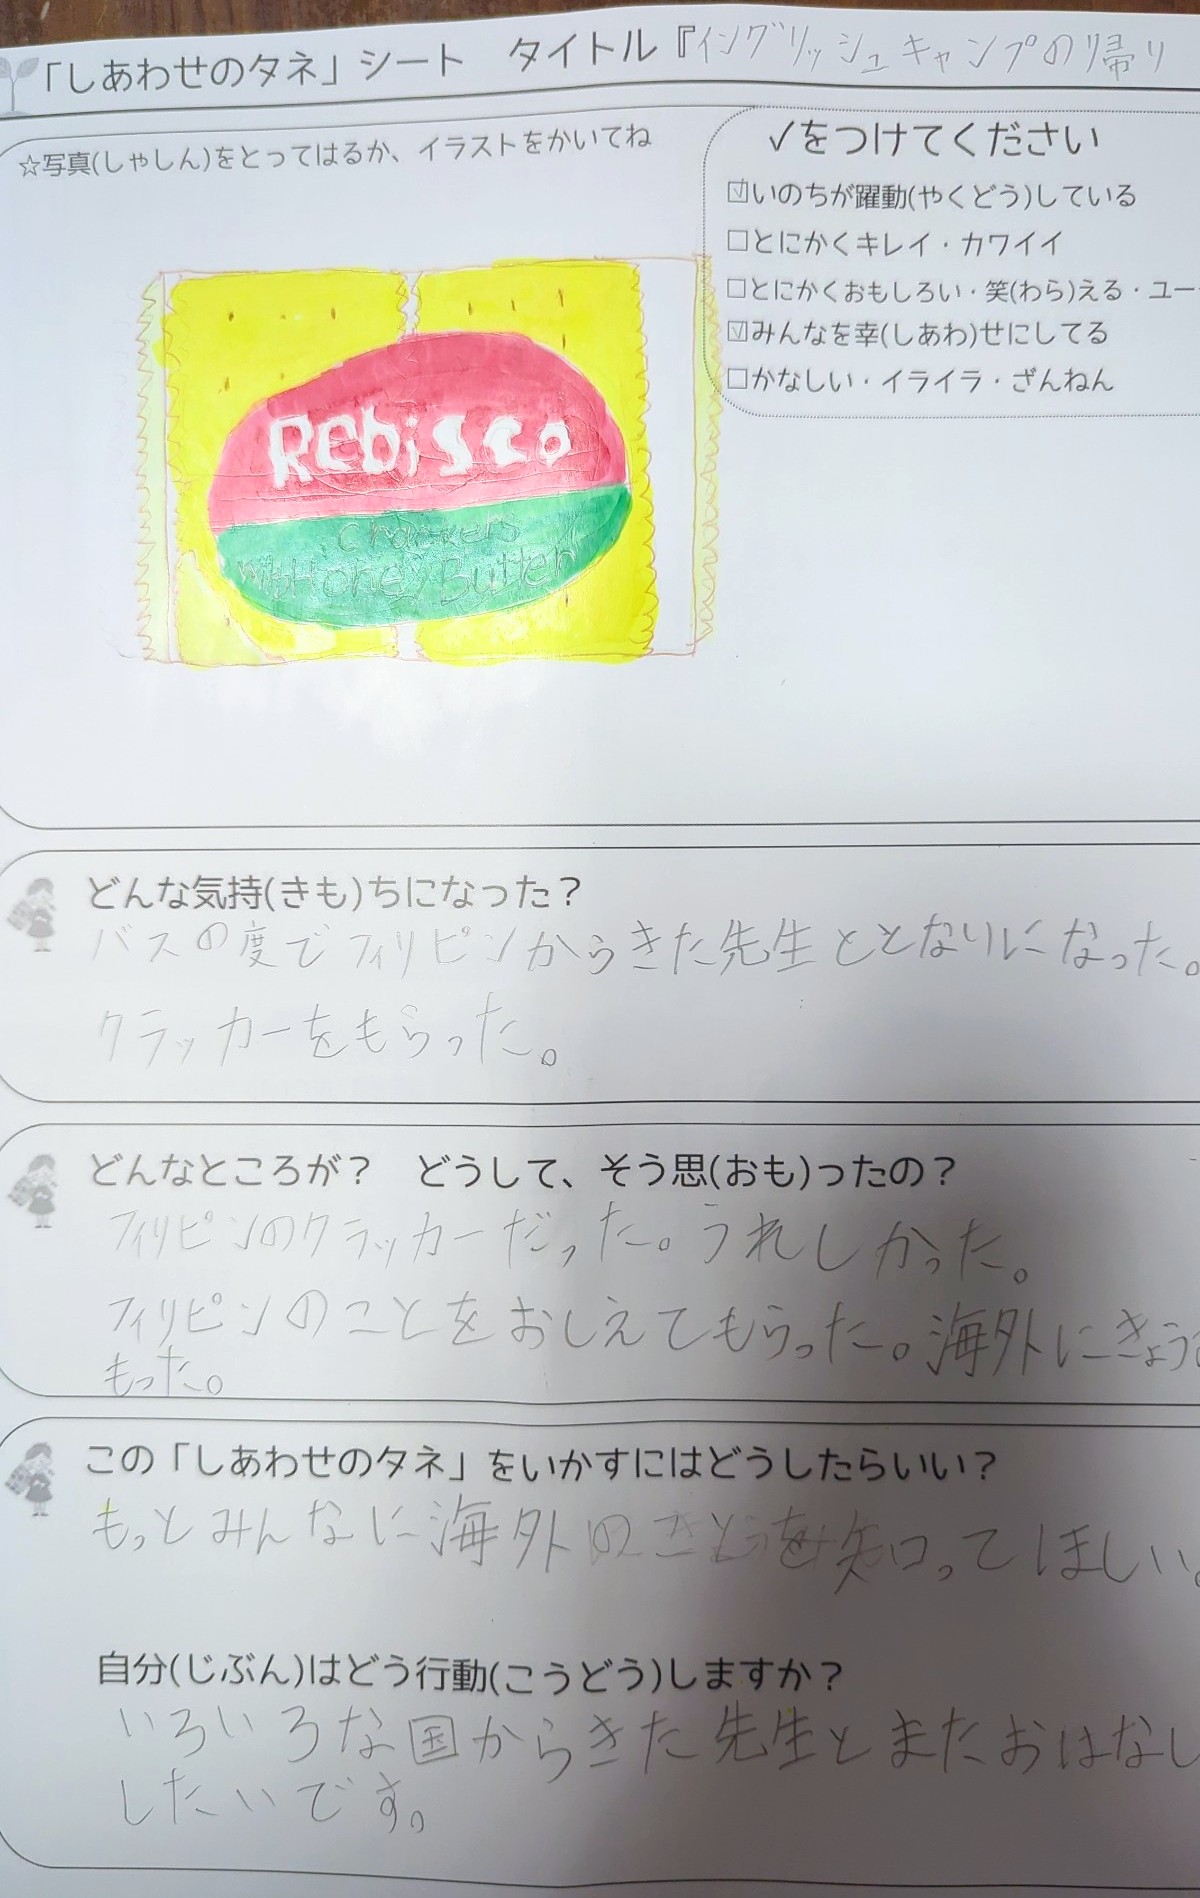 「しあわせのタネ」シート　タイトル『イングリッシュキャンプの帰り
☆写真(しゃしん)をとってはるか、イラストをかいてね
✓をつけてください
☑いのちが躍動(やくどう)している
□とにかくキレイ・カワイイ
□とにかくおもしろい・笑(わら)える・ユー
☑みんなを幸(しあわ)せにしてる
□かなしい・イライラ・ざんねん
Rebisco
Crackers
Honey Butter
どんな気持(きも)ちになった？
バスの度でフィリピンからきた先生ととなりになった。
クラッカーをもらった。
どんなところが？　どうして、そう思(おも)ったの？
フィリピンのクラッカーだった。うれしかった。
フィリピンのことをおしえてもらった。海外にきょう
もった。
この「しあわせのタネ」をいかすにはどうしたらいい？
もっとみんなに海外のことを知ってほしい。
自分(じぶん)はどう行動(こうどう)しますか？
いろいろな国からきた先生とまたおはなし
したいです。